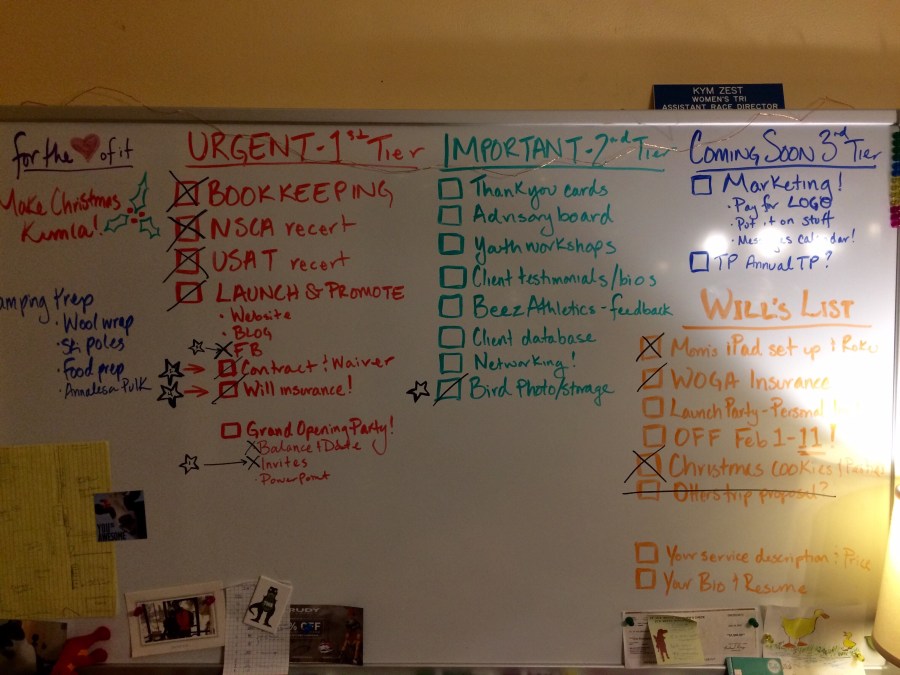 KYM ZEST
WOMEN'S TRI
ASSISTANT RACE DIRECTOR
for the of it
Make Christmas
Kimia!
amping prep
· Wool wrap
· Ski poles
· Food prep
· Annalesa Pulk
URGENT - 1st Tier
BOOKKEEPING
NSCA recert
USAT recert
LAUNCH & PROMOTE
· Website
· BLOG
FB
Contract & Waiver
Will insurance!
Grand Opening Party!
Balance & Date
Invites
· PowerPoint
IMPORTANT - 2nd Tier
Thank you cards
Advisory board
Youth workshops
Client testimonials/bios
Beez Athletics - feedback
Client database
Networking!
Bird Photo/storage
COMING SOON 3rd Tier
Marketing!
· Pay for LOGO
· Put it on stuff
· Messages calendar!
TP Annual TP?
WILL'S LIST
Mom's iPad set up & Roku
WOGA Insurance
Launch Party - Personal
OFF Feb 1-11!
Christmas cookies &
Otters trip proposal?
Your service description & Price
Your Bio & Resume
% OFF